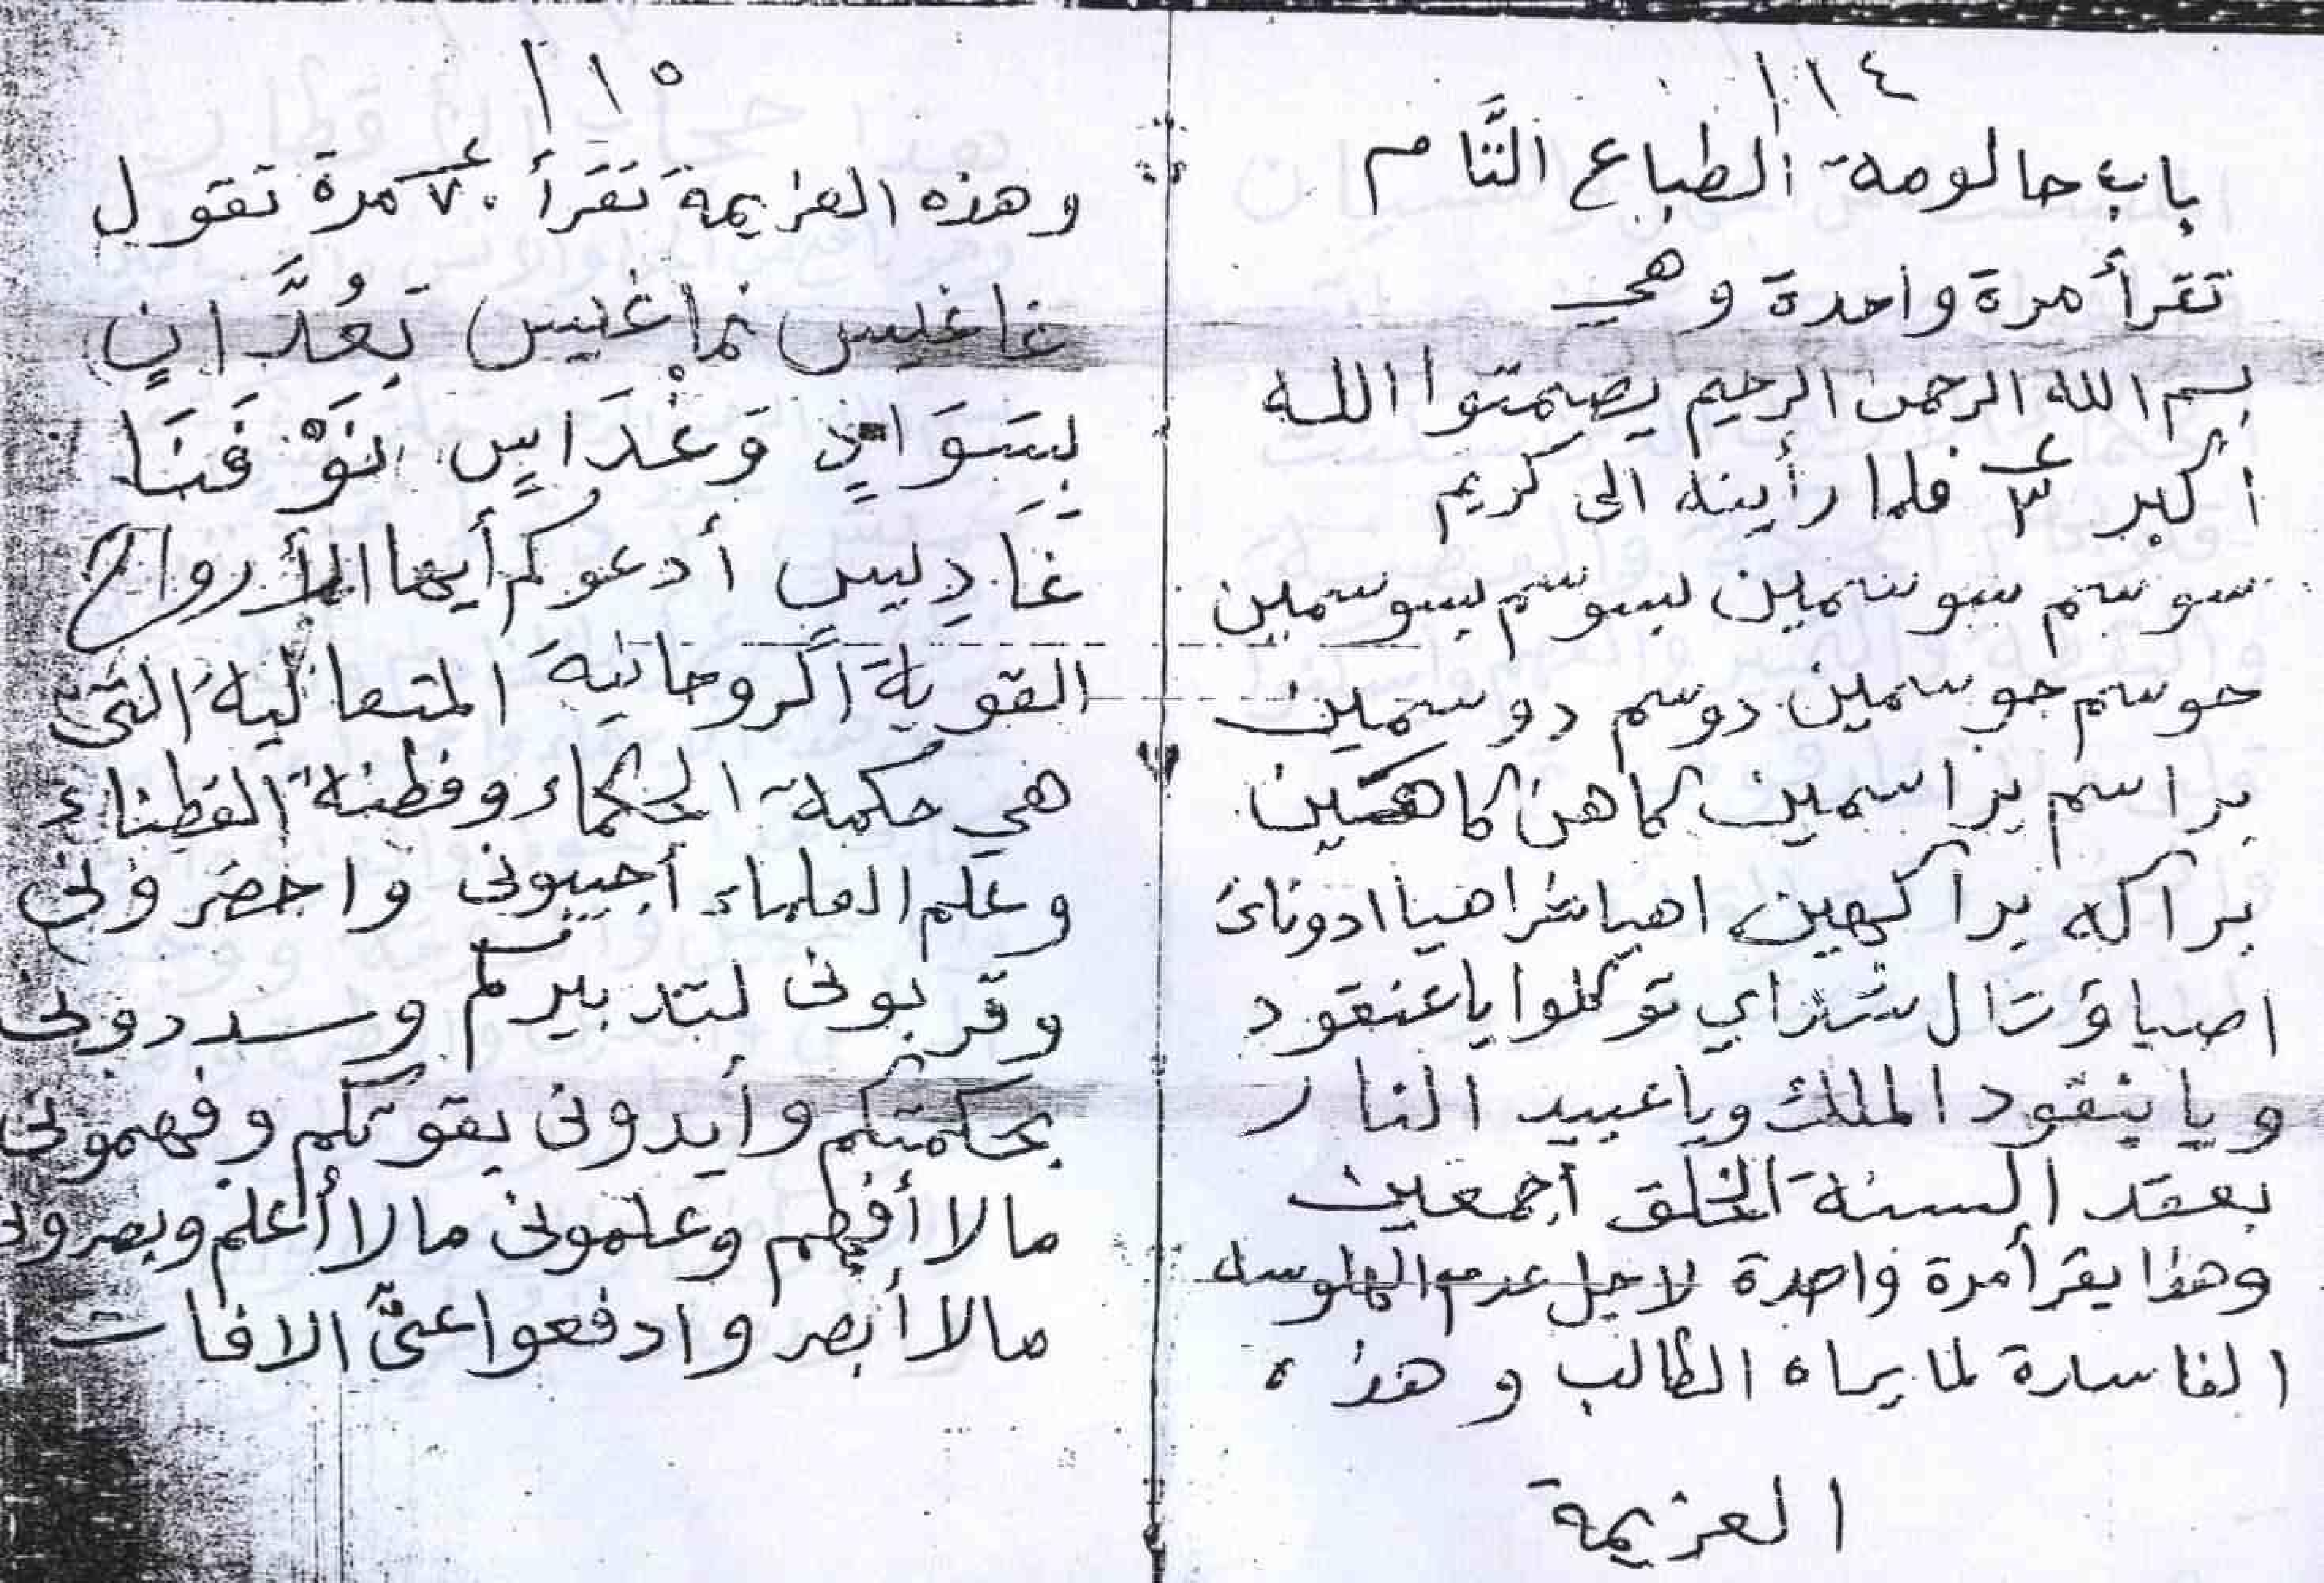 ١١٤
باب حالومة الطباع التَّام
تقرأ مرة واحدة وهي
بسم الله الرحمن الرحيم يصيمتوا الله
أكبر ٣ فلما رأينه الى كريم
سوسم سوسمين بسوسم بسوسمين
حوسم حوسمين دوسم دوسمين
براسم براسمين كاهن كاهنين
براكه براكهين اهيا شراهيا ادوناى
اصباؤت ال شداي توكلوا يا عنقود
ويا ينقود الملك ويا عبيد النار
بعقد السنة الخلق أجمعين
وهذا يقرأ مرة واحدة لاجل عدم الهلوسه
الفاسدة لما يراه الطالب وهذه
العزيمة
١١٥
وهذه العزيمة تقرأ ٧٠ مرة تقول
غاغيس نماغيس بَعُدَّانٍ
بِسَوَادٍ وَغْدَاسٍ نَوْفَنَا
غَادِيسٍ أدعوكم أيها الأرواح
القوية الروحانية المتعالية التى
هي حكمة الحكماء وفطنة الفطناء
وعلم العلماء أجيبونى واحضرونى
وقربونى لتدبيركم وسددونى
بحكمتكم وأيدونى بقوتكم وفهمونى
مالا أفهم وعلمونى مالا أعلم وبصرونى
مالا أبصر وادفعوا عنَّى الافات